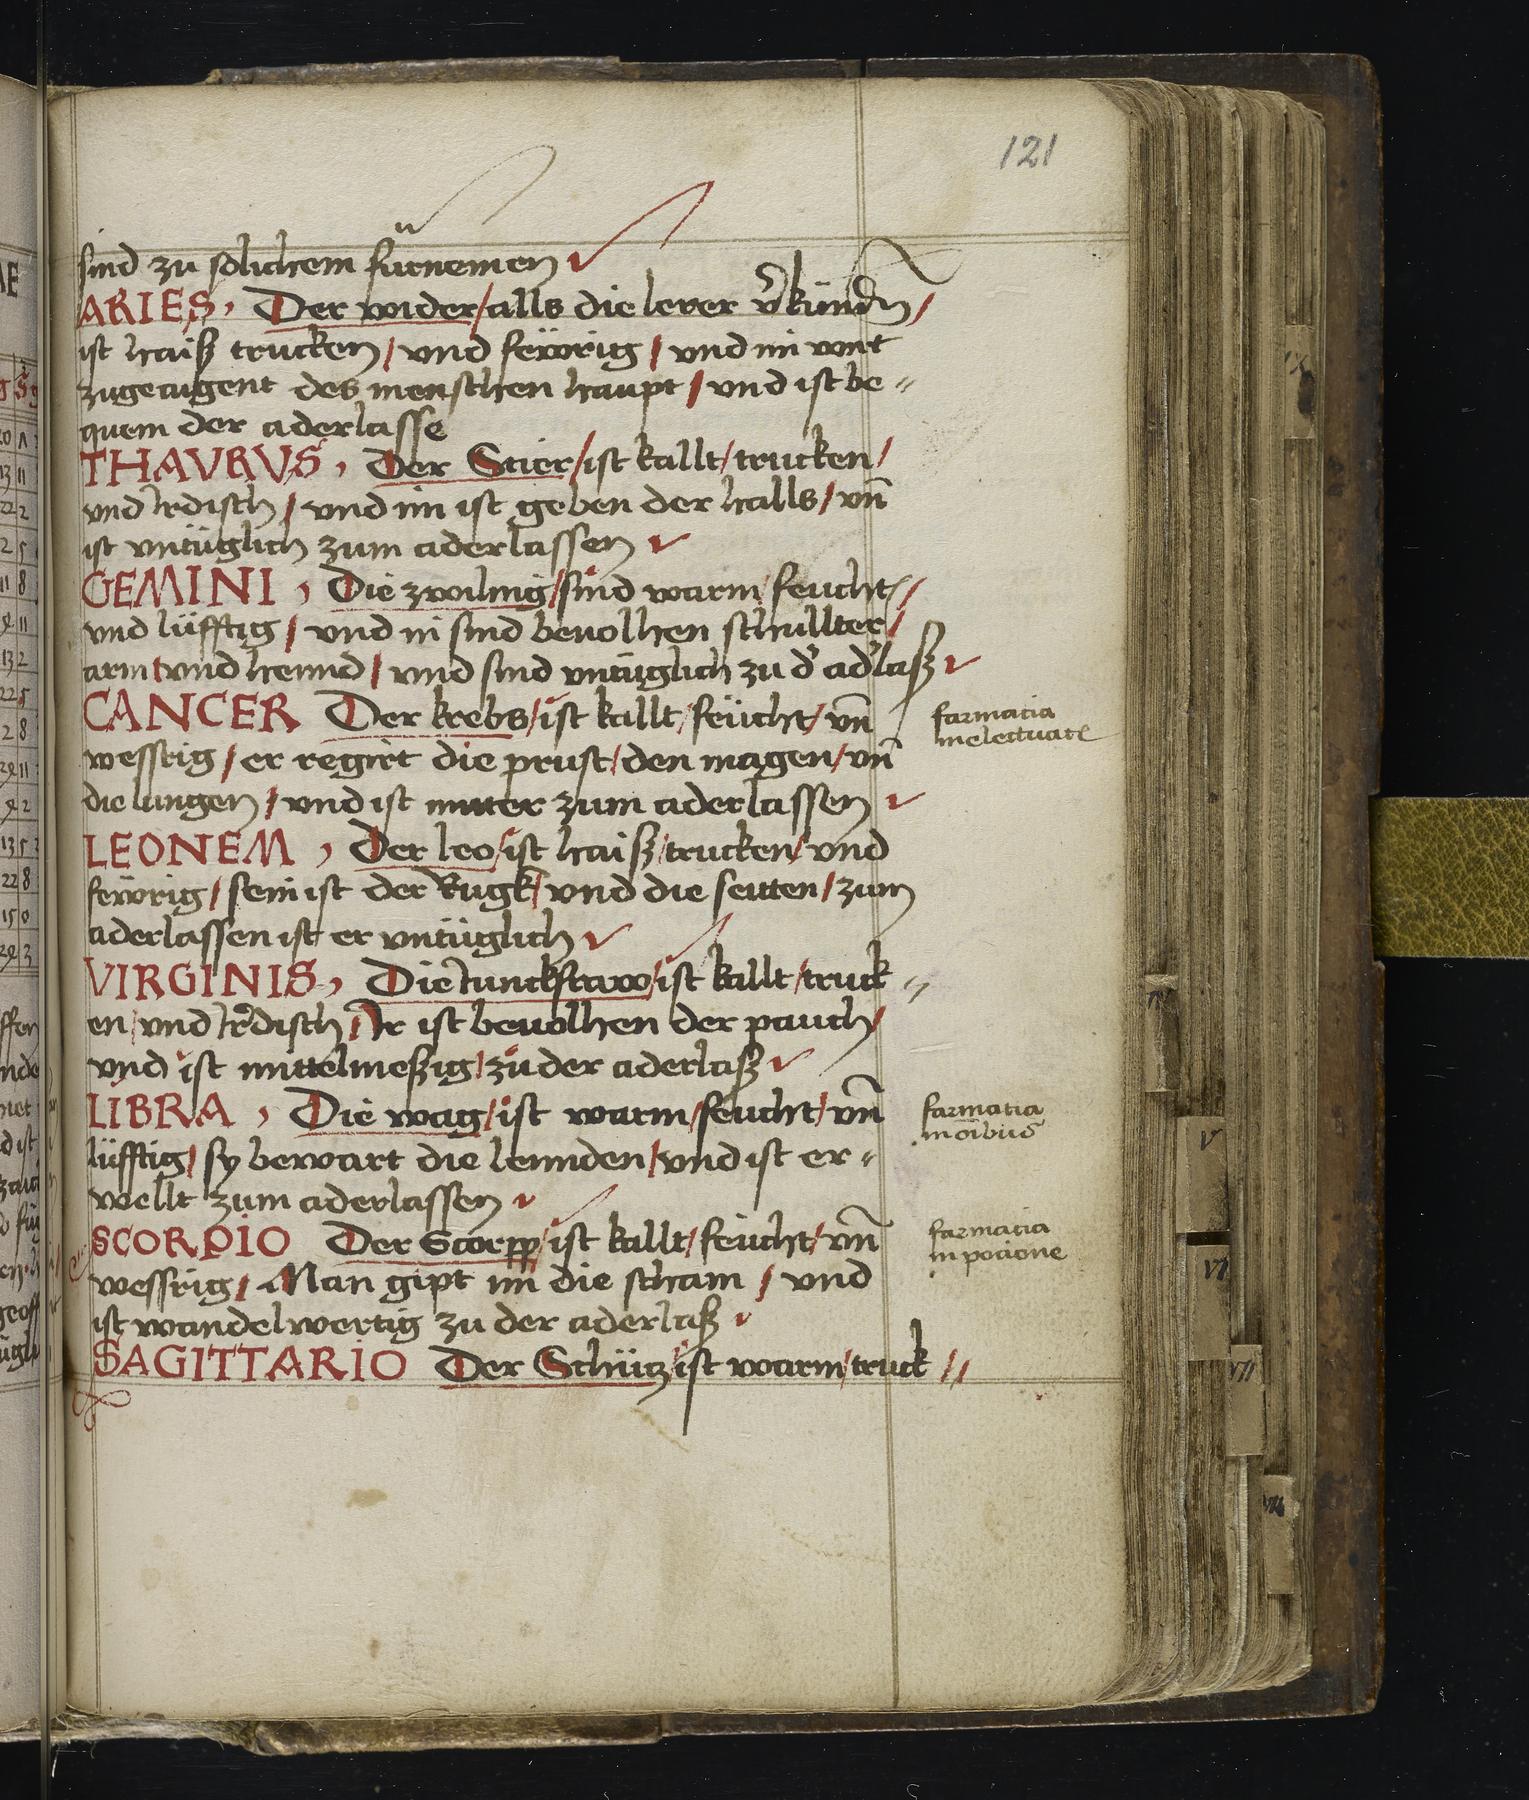 121
sind zu sölichem fürnemen
ARIES, Der wider/alls die lerer v̾kündn̄/
ist haiß trucken/vnd fewrig/vnd im wirt
zugeaigent des menschen haupt/vnd ist be=
quem der aderlasse
THAVRVS, Der Stier/ist kallt/trucken/
vnd Irdisch/vnd im ist geben der halls/vn̄
ist vntüglich zum aderlassen
GEMINI, Die zwiling/sind warm/feucht/
vnd lüfftig/vnd in sind beuolhen schullter/
arm/vnd hennd/vnd sind vntüglich zu d' ad'laß
CANCER Der krebs/ist kallt/feücht/vn̄
wessrig/er regirt die prust/den magen/vn̄
die lungen/vnd ist mitter zum aderlassen
farmatia
in electuare
LEONEM, Der leo/ist haiß/trucken/vnd
fewrig/sein ist der Rugk/vnd die seitten/zum
aderlassen ist er vntüglich
VIRGINIS, Die Iunckfraw/ist kallt/truck=
en/vnd Irdisch/Ir ist beuolhen der pauch/
vnd ist mittelmeßig/zu der aderlaß
LIBRA, Die wag/ist warm/feucht/vn̄
lüfftig/sy bewart die lennden/vnd ist er=
wellt zum aderlassen
farmatia
in oĩbus
SCORPIO Der Scorpp/ist kallt/feücht/vn̄
wessrig/Man gipt im die scham/vnd
ist wandelwertig zu der aderlaß
farmatia
in pocione
SAGITTARIO Der Schütz/ist warm/truck//